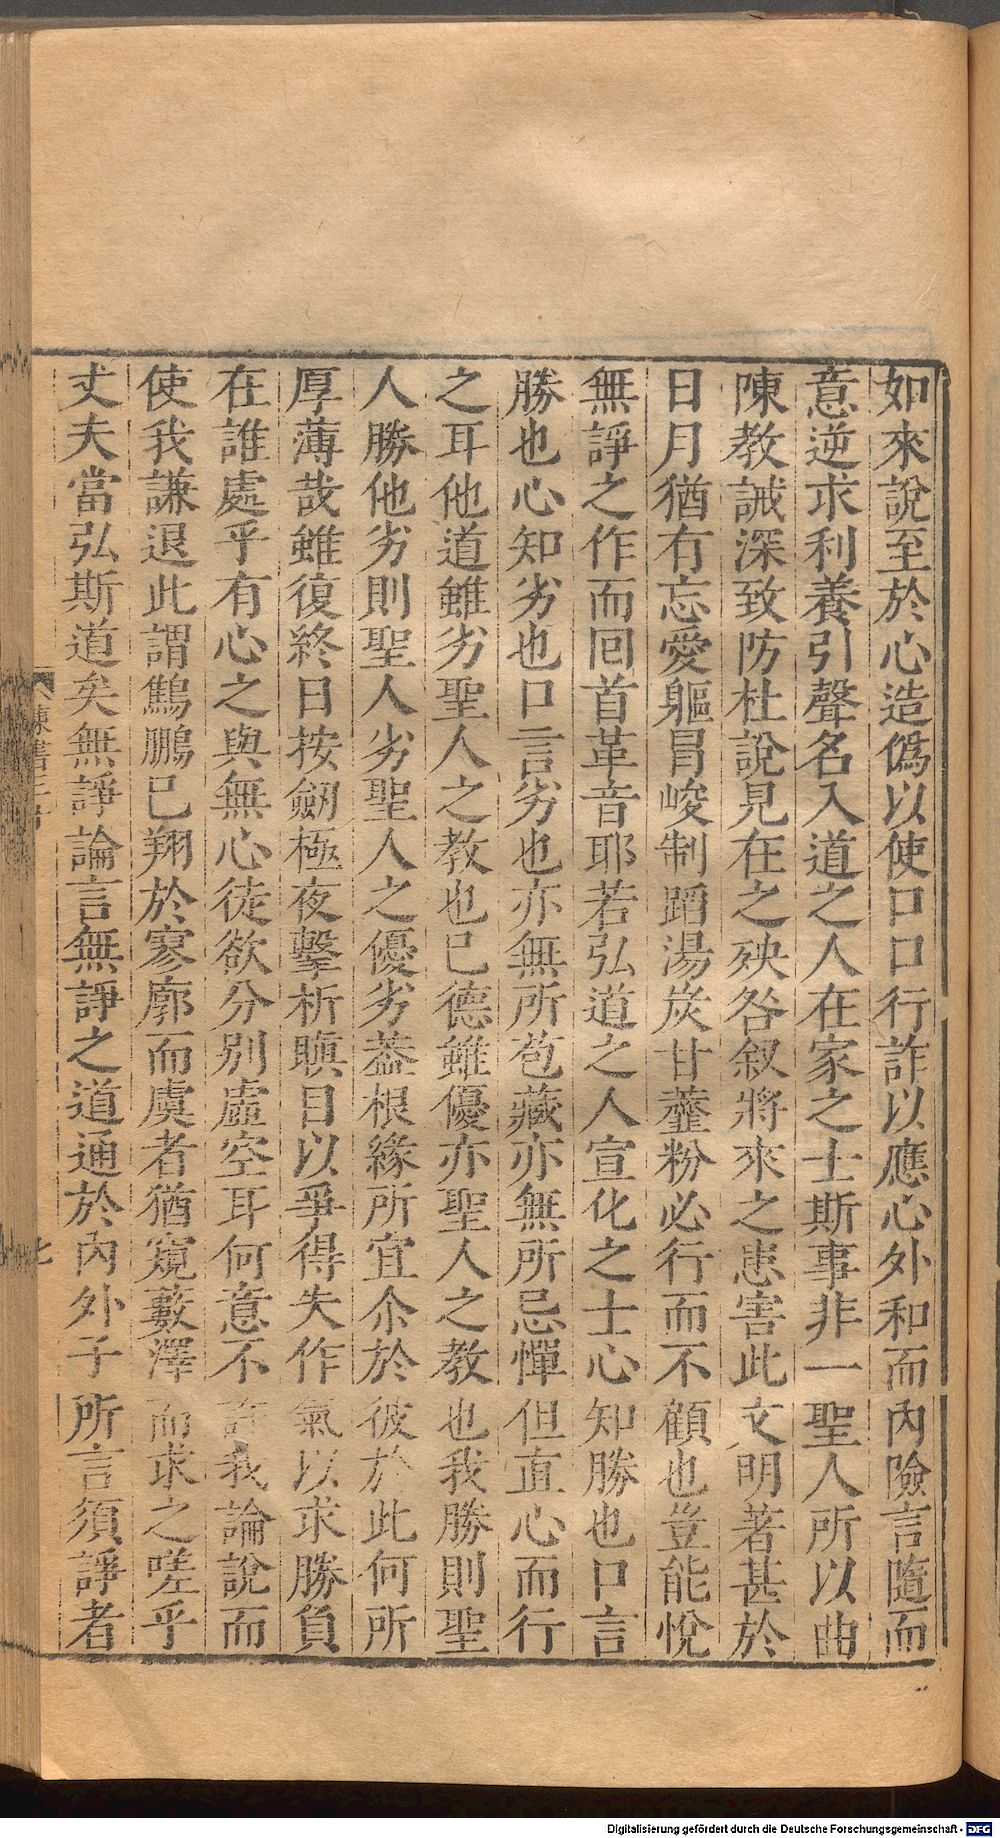 如來說至於心造僞以使口口行詐以應心外和而內險言隨而
意逆求利養引聲名入道之人在家之士斯事非一聖人所以曲
陳教誡深致防杜說見在之殃咎叙將來之患害此文明著甚於
日月猶有忘愛軀冒峻制蹈湯炭甘虀粉必行而不顧也豈能悅
無諍之作而回首革音耶若弘道之人宣化之士心知勝也口言
勝也心知劣也口言劣也亦無所苞藏亦無所忌憚但直心而行
之耳他道雖劣聖人之教也己德雖優亦聖人之教也我勝則聖
人勝他劣則聖人劣聖人之優劣葢根緣所宜尒於彼於此何所
厚薄哉雖復終日按劒極夜擊柝瞋目以爭得失作氣以求勝負
在誰處乎有心之與無心徒欲分別虛空耳何意不許我論說而
使我謙退此謂鷦鵬已翔於寥廓而虞者猶窺藪澤而求之嗟乎
丈夫當弘斯道矣無諍論言無諍之道通於內外子所言須諍者
Digitalisierung gefördert durch die Deutsche Forschungsgemeinschaft - DFG